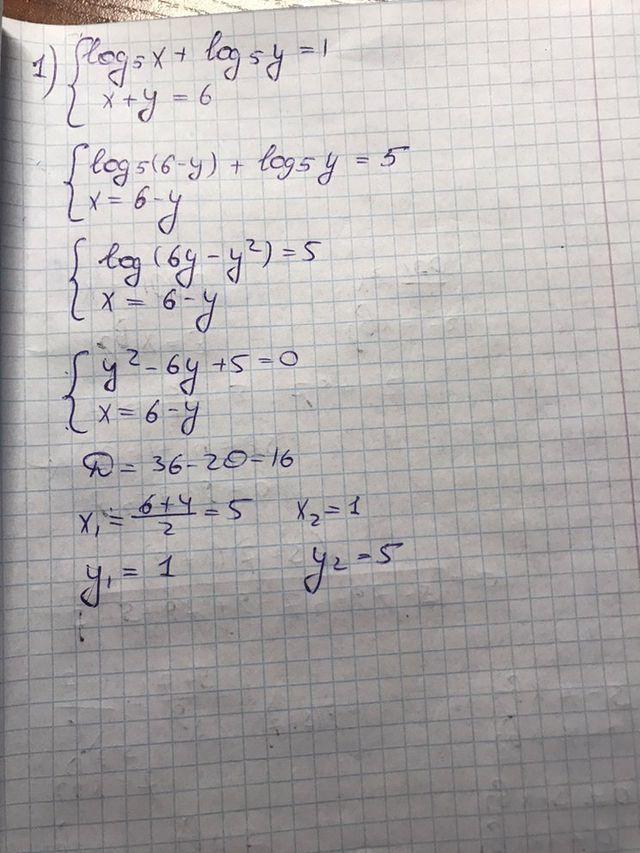 1) { log₅x + log₅y = 1
x + y = 6
{ log₅(6-y) + log₅y = 5
x = 6-y
{ log(6y - y²) = 5
x = 6-y
{ y² - 6y + 5 = 0
x = 6-y
D = 36 - 20 = 16
x₁ = (6+4)/2 = 5 x₂ = 1
y₁ = 1 y₂ = 5